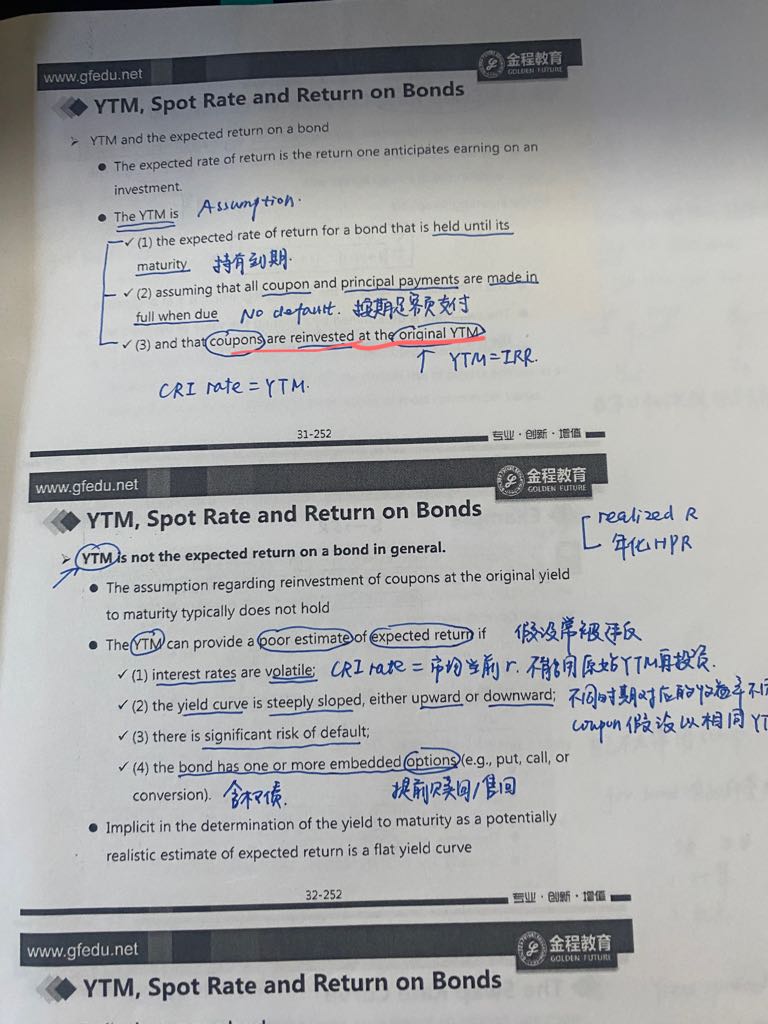 www.gfedu.net
金程教育
GOLDEN FUTURE
YTM, Spot Rate and Return on Bonds
YTM and the expected return on a bond
The expected rate of return is the return one anticipates earning on an
investment.
The YTM is Assumption.
(1) the expected rate of return for a bond that is held until its
maturity 持有到期.
(2) assuming that all coupon and principal payments are made in
full when due No default. 按期足额支付
(3) and that coupons are reinvested at the original YTM
↑ YTM=IRR.
CRI rate = YTM.
31-252
专业·创新·增值
www.gfedu.net
金程教育
GOLDEN FUTURE
YTM, Spot Rate and Return on Bonds
realized R
年化HPR
YTM is not the expected return on a bond in general.
The assumption regarding reinvestment of coupons at the original yield
to maturity typically does not hold
The YTM can provide a poor estimate of expected return if 假设常被违反
(1) interest rates are volatile; CRI rate = 市场当前r. 不能用原始YTM再投资.
(2) the yield curve is steeply sloped, either upward or downward; 不同时期对应的收益率不同
coupon假设以相同 YT
(3) there is significant risk of default;
(4) the bond has one or more embedded options (e.g., put, call, or
conversion). 含权债. 提前赎回/售回
Implicit in the determination of the yield to maturity as a potentially
realistic estimate of expected return is a flat yield curve
32-252
专业·创新·增值
www.gfedu.net
金程教育
GOLDEN FUTURE
YTM, Spot Rate and Return on Bonds